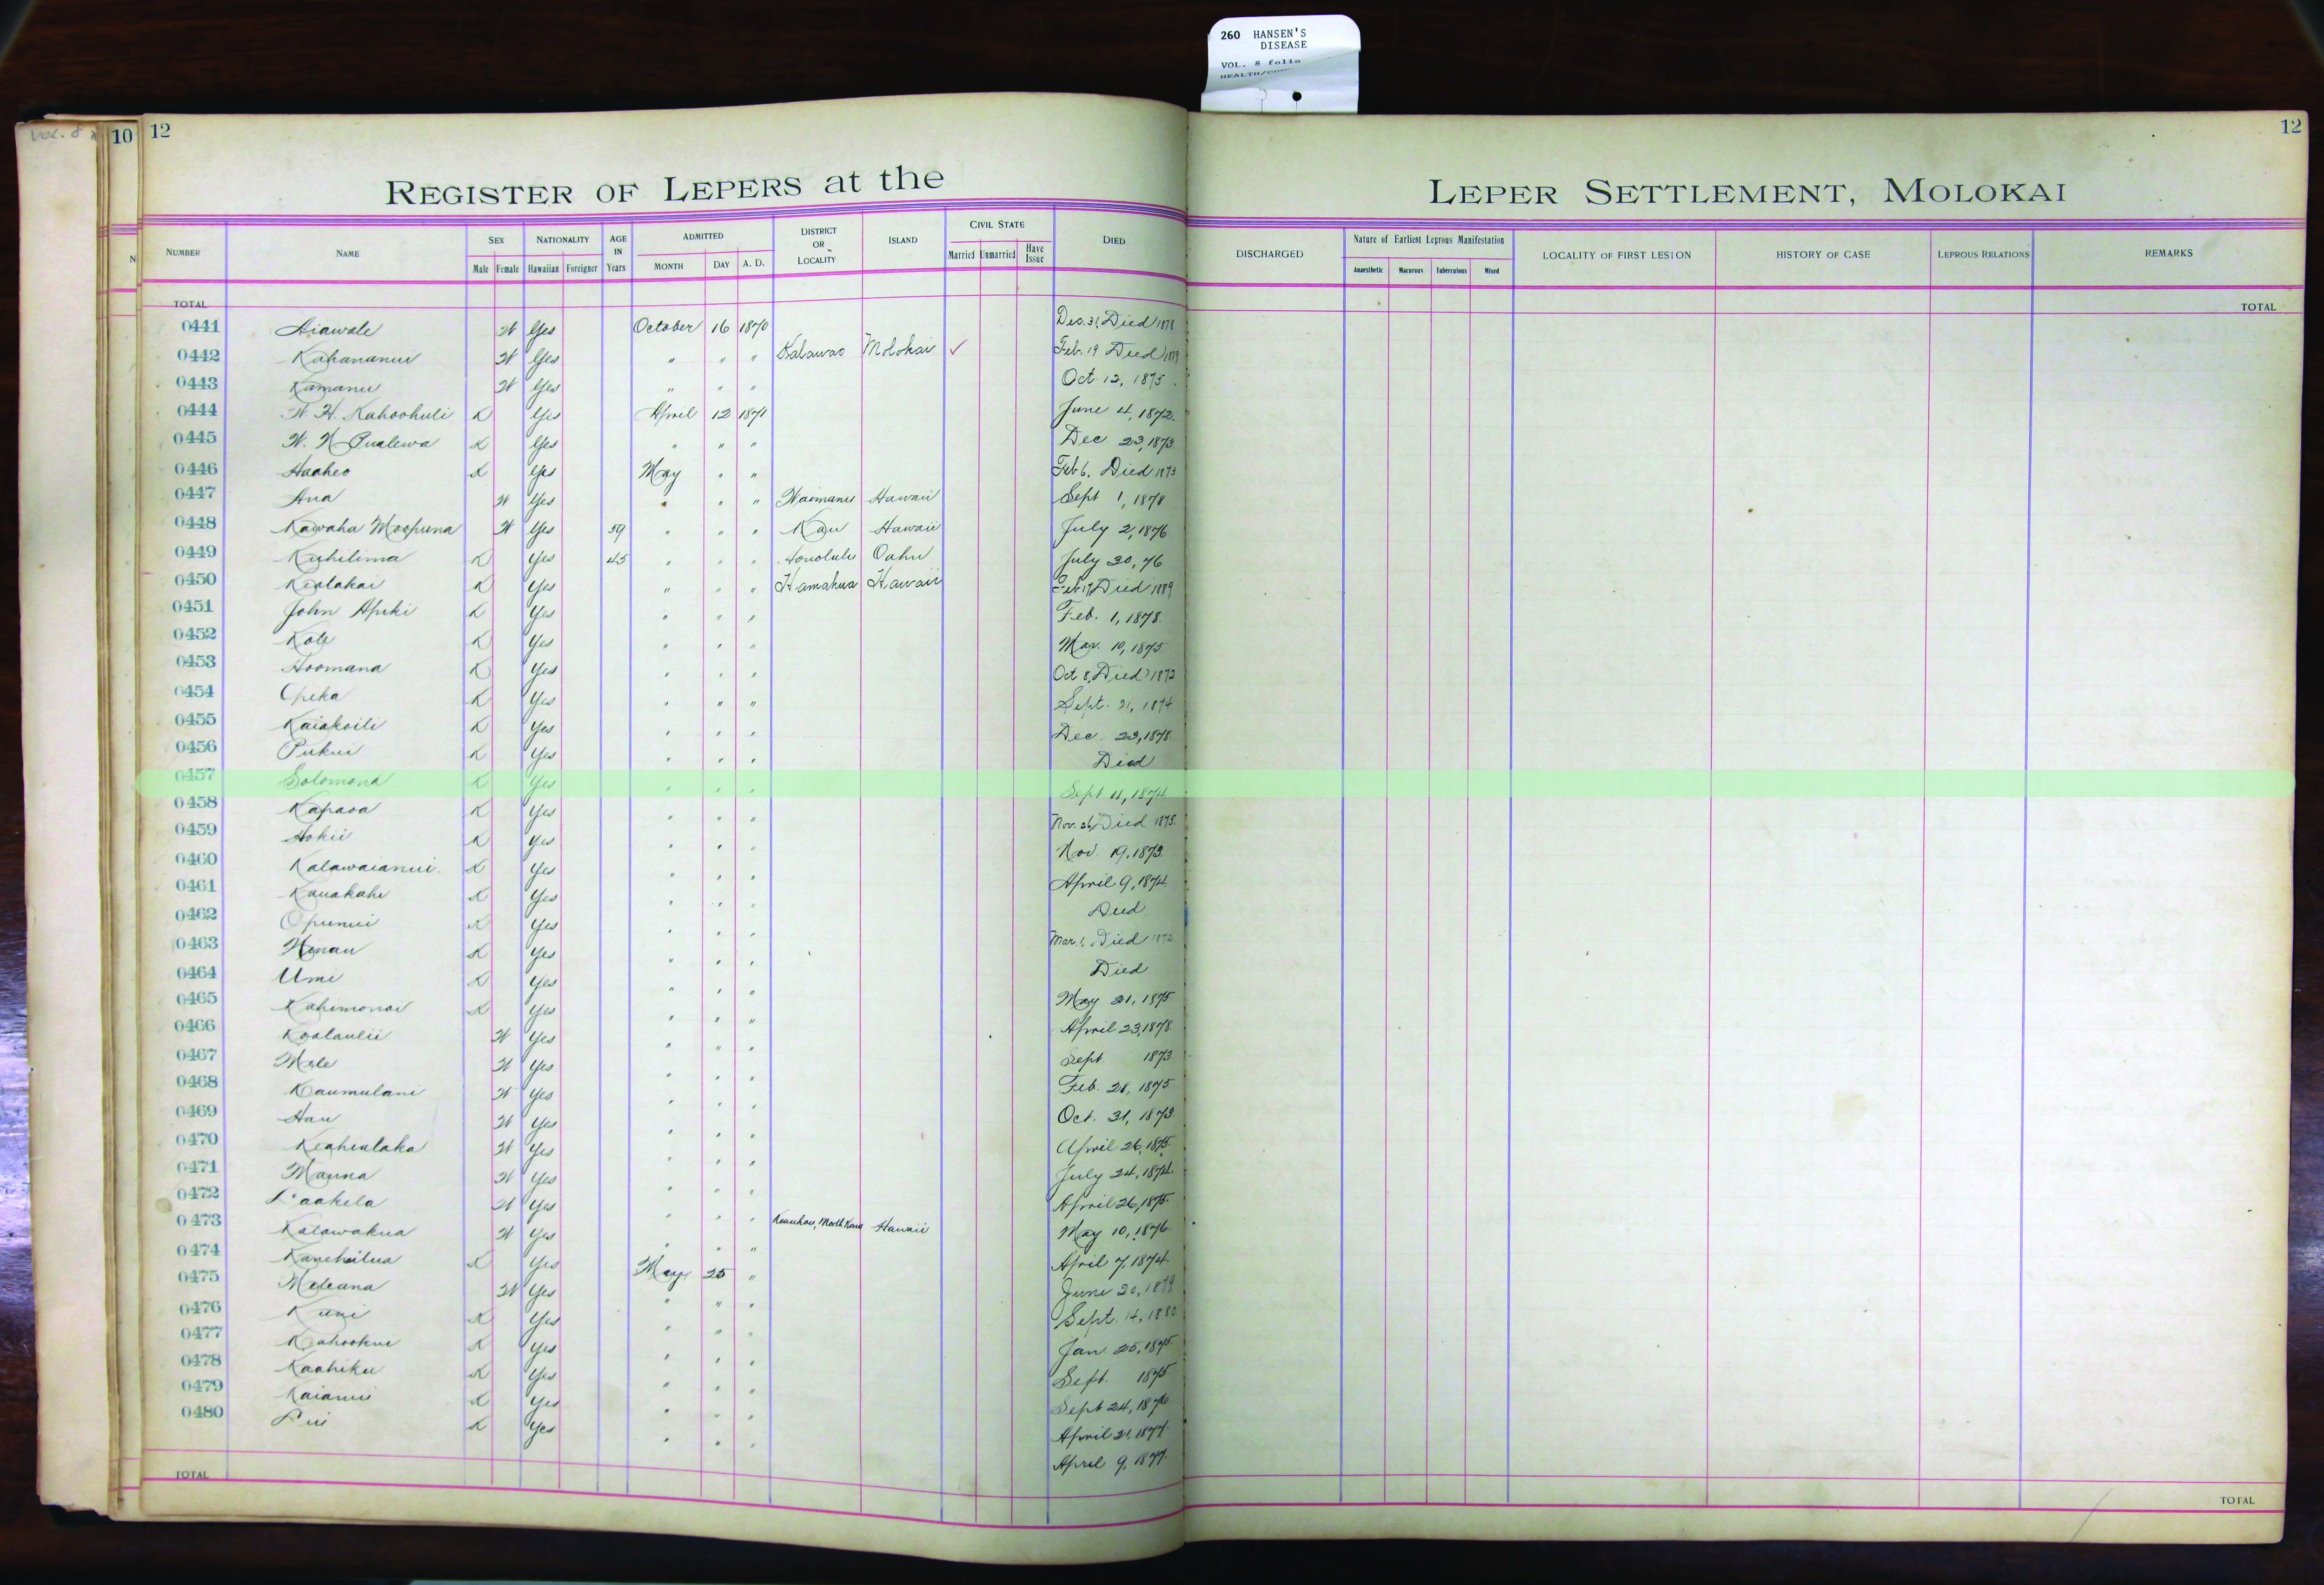 260 HANSEN'S
DISEASE
VOL. 8 folio
VOL. 8
10
12
12
REGISTER OF LEPERS at the LEPER SETTLEMENT, MOLOKAI
NUMBER NAME SEX NATIONALITY AGE IN Years ADMITTED DISTRICT OR LOCALITY ISLAND CIVIL STATE DIED DISCHARGED Nature of Earliest Leprous Manifestation LOCALITY OF FIRST LESION HISTORY OF CASE LEPROUS RELATIONS REMARKS
Male Female Hawaiian Foreigner MONTH DAY A. D. Married Unmarried Have Issue Anaesthetic Macurous Tuberculous Mixed
TOTAL TOTAL
0441 Aiawale W Yes October 16 1870 Dec. 31, Died 1878
0442 Kahananui W Yes " " " Kalawao Molokai ✓ Feb. 19 Died
0443 Kamanu W Yes " " " Oct. 12, 1875
0444 W. H. Kahoohuli K Yes April 12 1871 June 4, 1872
0445 W. N Pualewa K Yes " " " Dec. 23, 1873
0446 Haaheo K Yes May " " Feb 6, Died 1873
0447 Ana W Yes " " " Waimanu Hawaii Sept 1, 1878
0448 Kawaha Moopuna W Yes 59 " " " Kau Hawaii July 2, 1876
0449 Kuhilima K Yes 45 " " " Honolulu Oahu July 30, 76
0450 Kealakai K Yes " " " Hamakua Hawaii Feb 17, Died 1889
0451 John Apiki K Yes " " " Feb. 1, 1878
0452 Kole K Yes " " " Mar. 10, 1875
0453 Hoomana K Yes " " " Oct 8, Died 1873
0454 Opeka K Yes " " " Sept. 21, 1874
0455 Kaiakoili K Yes " " " Dec. 23, 1878
0456 Pukui K Yes " " " Died
0457 Solomona K Yes " " " Sept 11, 1874
0458 Kapaoa K Yes " " " Nov. 26, Died 1875
0459 Hokii K Yes " " " Nov. 19, 1873
0460 Kalawaianui K Yes " " " April 9, 1874
0461 Kauakahi K Yes " " " Died
0462 Opunui K Yes " " " Mar. 1, Died
0463 Hinau K Yes " " " Died
0464 Umi K Yes " " " May 21, 1875
0465 Kahimonoi K Yes " " " April 23, 1878
0466 Koolaulii W Yes " " " Sept 1873
0467 Mele W Yes " " " Feb. 28, 1875
0468 Kaumulani W Yes " " " Oct. 31, 1873
0469 Hau W Yes " " " April 26, 1875
0470 Keahialaka W Yes " " " July 24, 1874
0471 Mauna W Yes " " " April 26, 1875
0472 Laakela W Yes " " " Keauhou, North Kona Hawaii May 10, 1876
0473 Kalawakua W Yes " " " April 7, 1874
0474 Kanehailua K Yes May 25 " June 20, 1879
0475 Meleana W Yes " " " Sept. 14, 1880
0476 Kuni K Yes " " " Jan 25, 1875
0477 Kahookui K Yes " " " Sept. 1875
0478 Kaahiku K Yes " " " Sept 24, 1876
0479 Kaianui K Yes " " " April 21, 1877
0480 Lui K Yes " " " April 9, 1877
TOTAL TOTAL